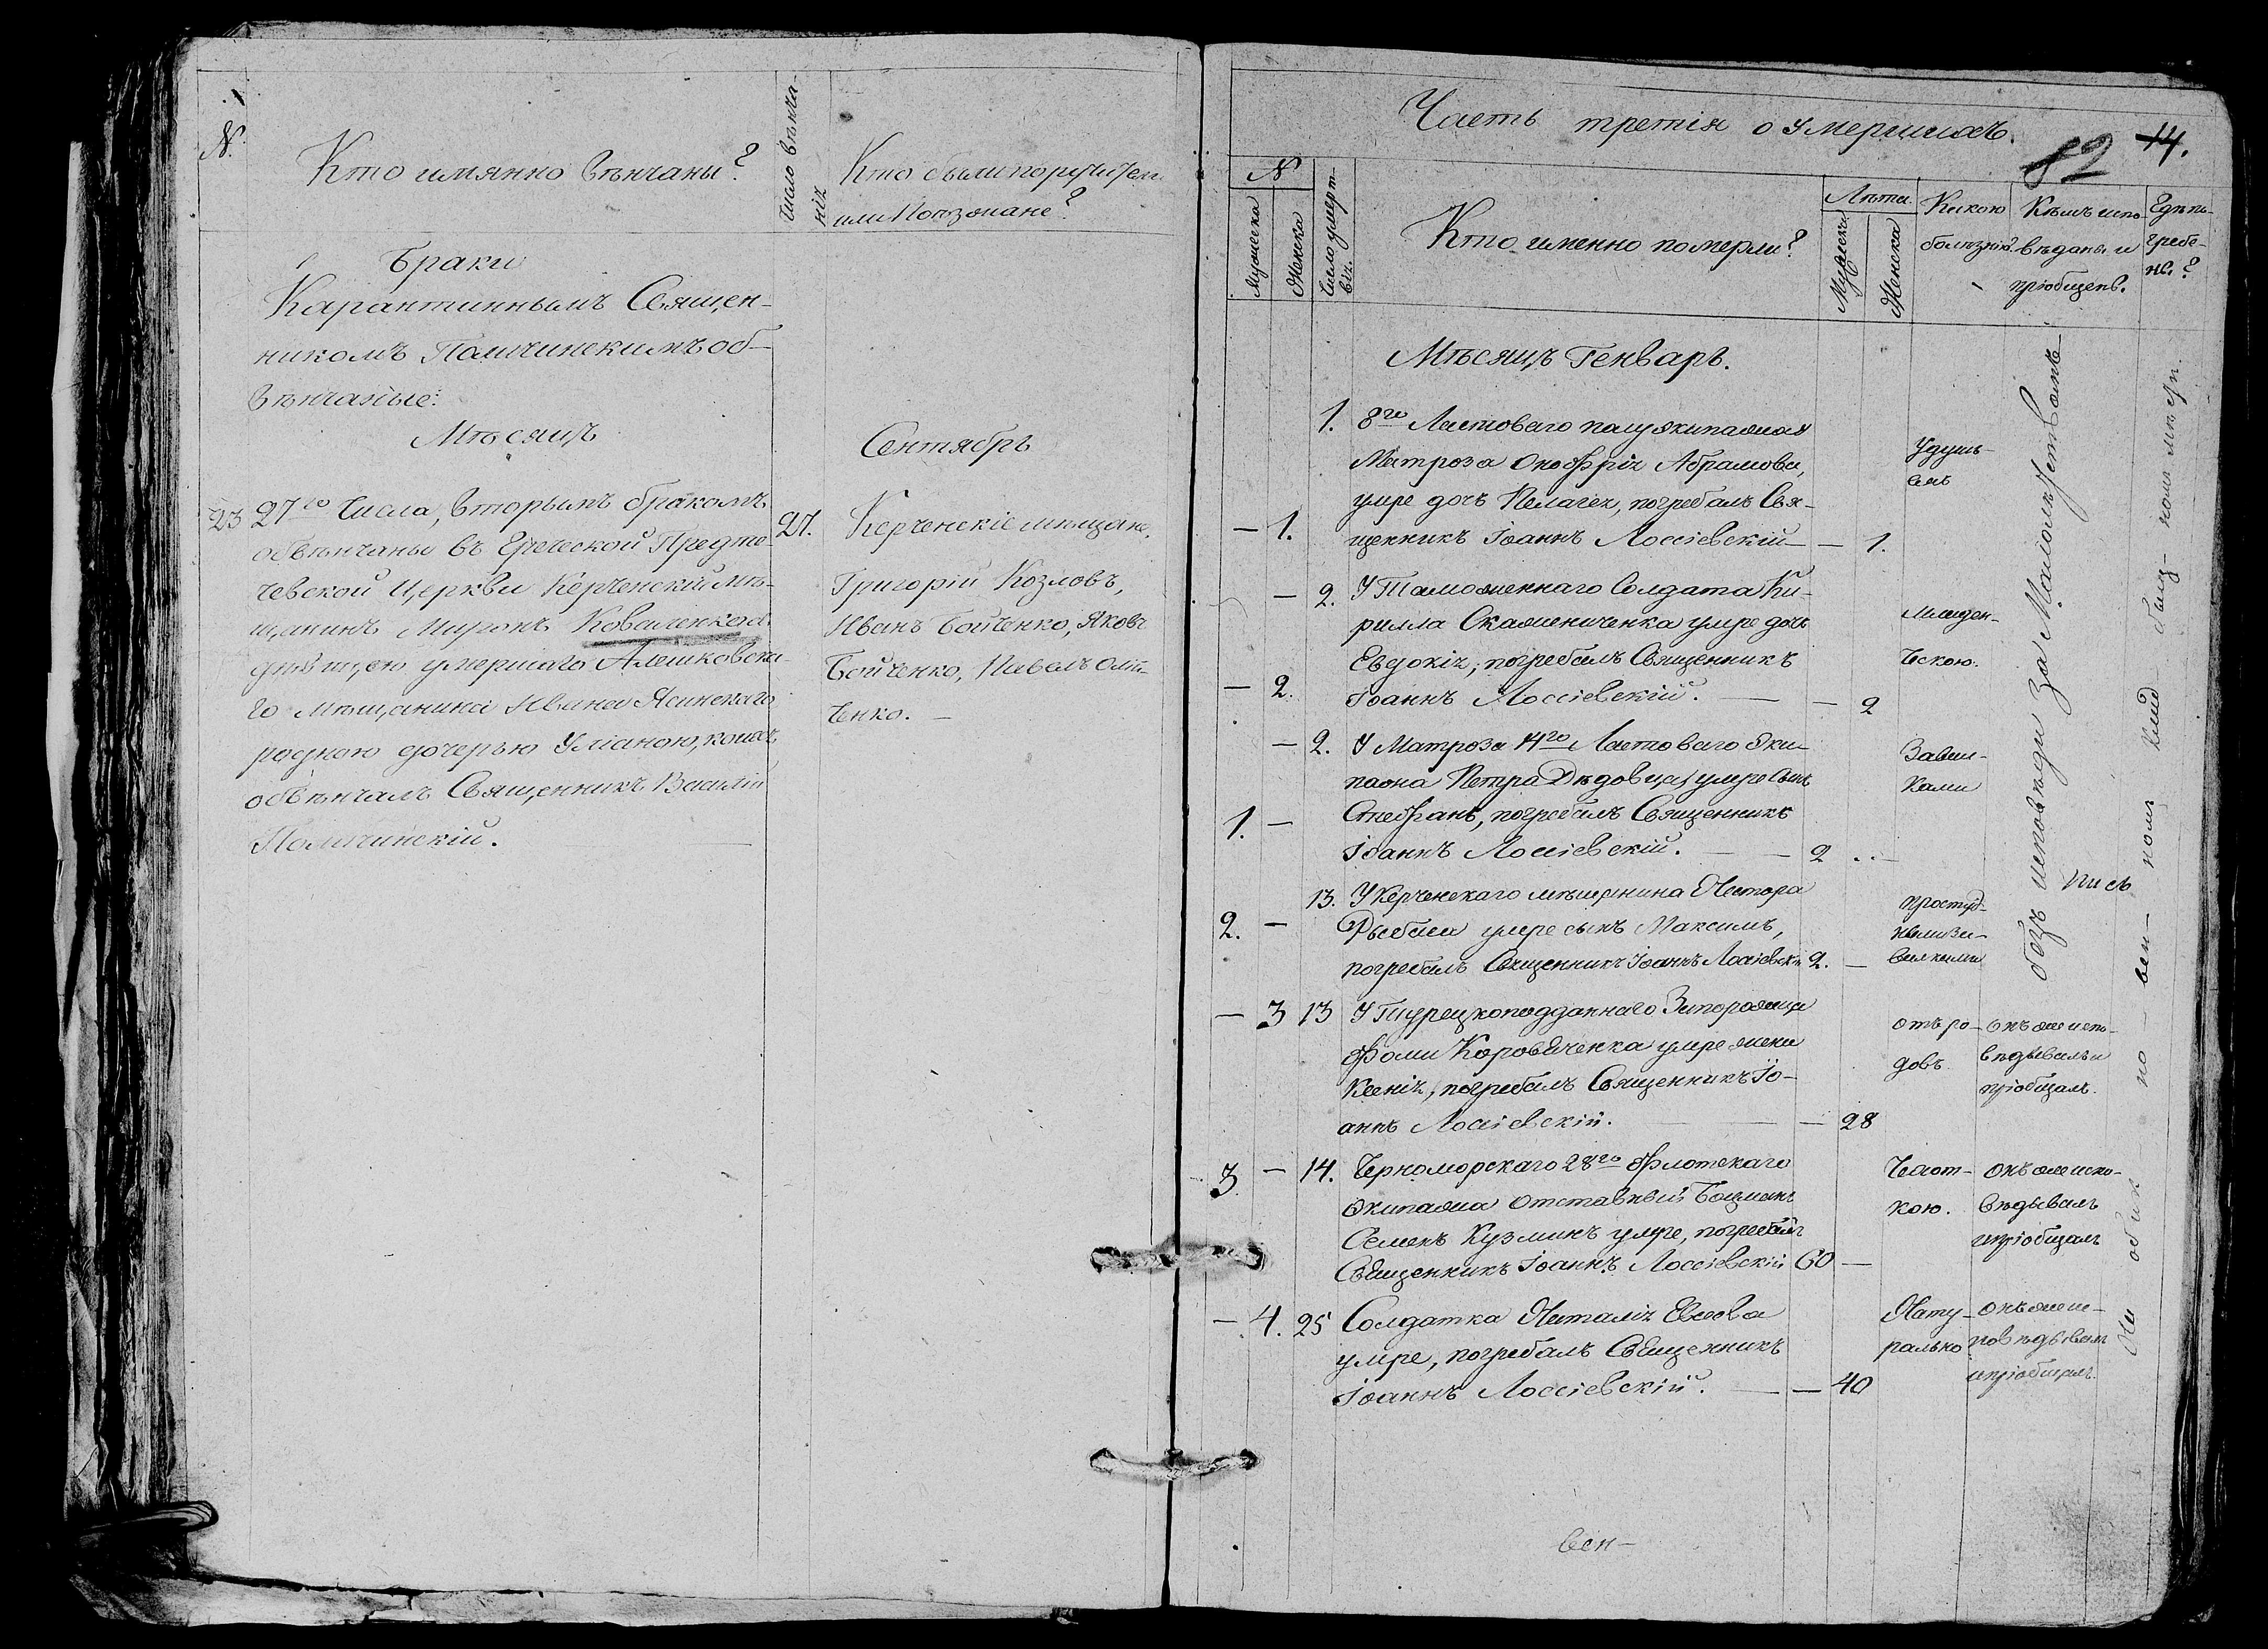 №
Кто имянно вѣнчаны?
Число вѣнча-
нія
Кто были поручители
или Поѣзжане?
Браки
Карантиннымъ Священ-
никомъ Помичинскимъ об-
вѣнчаные:
Мѣсяцъ
Сентябрь
23
27го Числа, вторымъ бракомъ
обвѣнчаны въ Греческой Предте-
чевской Церкви Керченскій мѣ-
щанинъ Миронъ Коваленко съ
дѣвицею умершаго Алешковска-
го мѣщанина Ивана Ясинскаго
родною дочерью Уліаною, коихъ
обвѣнчалъ Священникъ Василій
Помичинскій.
27.
Керченскіе мѣщане,
Григорій Козловъ,
Иванъ Бойченко, Яковъ
Бойченко, Павелъ
ченко.
Часть третія о умершихъ.
82 14.
№
Мужеска
Женска
Число умерт-
вія.
Кто именно померли?
Лѣта
Мужеска
Женска
Какою
болѣзнію?
Кѣмъ испо-
вѣданы и
пріобщены.
Гдѣ по-
гребе-
ны?
Мѣсяцъ Генварь.
1. 8го Ластоваго полуэкипажа
Матроза Онофрія Абрамова,
умре дочь Пелагея, погребалъ Свя-
— 1. щенникъ Іоаннъ Лоссіевскій — — 1.
Удушь-
емъ
— 2. У Таможеннаго Солдата Ки-
рилла Скаженниченка умре дочь
Евдокія, погребалъ Священникъ
— 2. Іоаннъ Лоссіевскій. — — 2
Младен-
ческою.
— 2. У Матроза 14го Ластоваго Эки-
пажа Петра Дѣдовца умре сынъ
1. — Стефанъ, погребалъ Священникъ
Іоаннъ Лоссіевскій. — — 2
Завал-
ками
13. У Керченскаго мѣщанина Нестора
2. — Рыбаса умре сынъ Максимъ,
погребалъ Священникъ Іоаннъ Лоссіевскій 2. —
Простуд-
ными за-
валками
безъ исповѣди за Малолѣтствомъ
— 3 13 У Турецкоподданнаго Запорожца
Фомы Коровяченка умре жена
Ксенія, погребалъ Священникъ Іо-
аннъ Лоссіевскій. — — 28
отъ ро-
довъ
онъ же испо-
вѣдывалъ и
пріобщалъ.
3. — 14. Черноморскаго 28го Флотскаго
Экипажа отставный Боцманъ
Семенъ Кузминъ умре, погребалъ
Священникъ Іоаннъ Лоссіевскій 60 —
Чахот-
кою.
онъ же испо-
вѣдывалъ
и пріобщалъ
— 4. 25 Солдатка Наталія Евсѣева
умре, погребалъ Священникъ
Іоаннъ Лоссіевскій. — — 40
Нату-
рально
онъ же ис-
повѣдывалъ
и пріобщалъ.
На общ
вен-